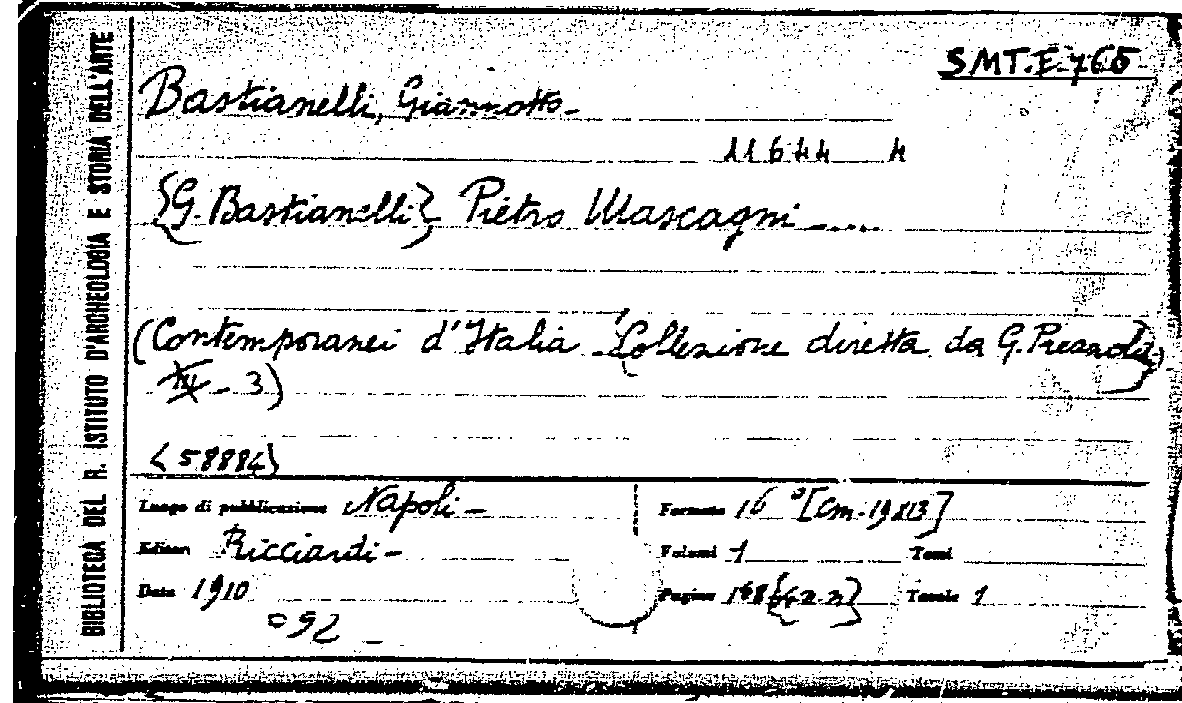 BIBLIOTECA DEL R. ISTITUTO D'ARCHEOLOGIA E STORIA DELL'ARTE
SMT.E.765
Bastianelli, Giannotto-
11644 4
{G. Bastianelli} Pietro Mascagni .....
(Contemporanei d'Italia - Collezione diretta da G. Prezzolini
- 3)
(58884)
Luogo di pubblicazione Napoli-
Editore Ricciardi-
Data 1910
052 -
Formato 16° [cm. 19x13]
Volumi 1 Tomi
Pagine Tavole 1